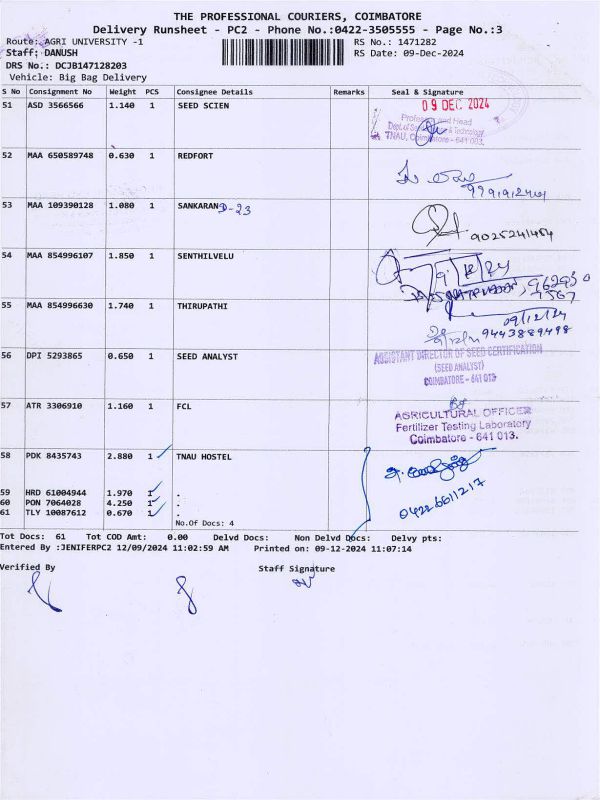 THE PROFESSIONAL COURIERS, COIMBATORE
Delivery Runsheet - PC2 - Phone No.:0422-3505555 - Page No.:3
Route: AGRI UNIVERSITY -1
RS No.: 1471282
Staff: DANUSH
RS Date: 09-Dec-2024
DRS No.: DCJB147128203
Vehicle: Big Bag Delivery
S No Consignment No Weight PCS Consignee Details Remarks Seal & Signature
51 ASD 3566566 1.140 1 SEED SCIEN
09 DEC 2024
Professor and Head
TNAU, Coimbatore - 641 003.
52 MAA 650589748 0.630 1 REDFORT
53 MAA 109390128 1.080 1 SANKARAN D-23
9025241454
54 MAA 854996107 1.850 1 SENTHILVELU
55 MAA 854996630 1.740 1 THIRUPATHI
09/12/24
9443889498
56 DPI 5293865 0.650 1 SEED ANALYST
ASSISTANT DIRECTOR OF SEED CERTIFICATION
(SEED ANALYST)
COIMBATORE - 641 013
57 ATR 3306910 1.160 1 FCL
AGRICULTURAL OFFICER
Fertilizer Testing Laboratory
Coimbatore - 641 013.
58 PDK 8435743 2.880 1 TNAU HOSTEL
59 HRD 61004944 1.970 1 .
60 PON 7064028 4.250 1 .
61 TLY 10087612 0.670 1 .
04226611217
No.Of Docs: 4
Tot Docs: 61 Tot COD Amt: 0.00 Delvd Docs: Non Delvd Docs: Delvy pts:
Entered By :JENIFERPC2 12/09/2024 11:02:59 AM Printed on: 09-12-2024 11:07:14
Verified By Staff Signature